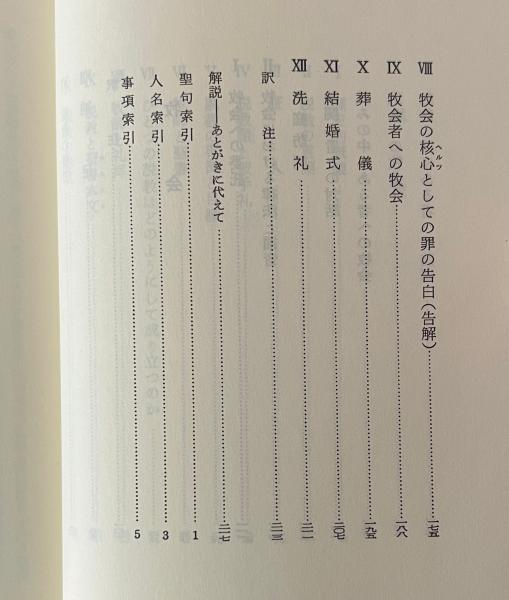 Ⅷ 牧会の核心としての罪の告白(告解)……一七五
ヘルツ
Ⅸ 牧会者への牧会……一八八
Ⅹ 葬儀……一九五
Ⅺ 結婚式……二〇七
Ⅻ 洗礼……二一一
訳注……二一三
解説――あとがきに代えて……二一七
聖句索引……1
人名索引……3
事項索引……5